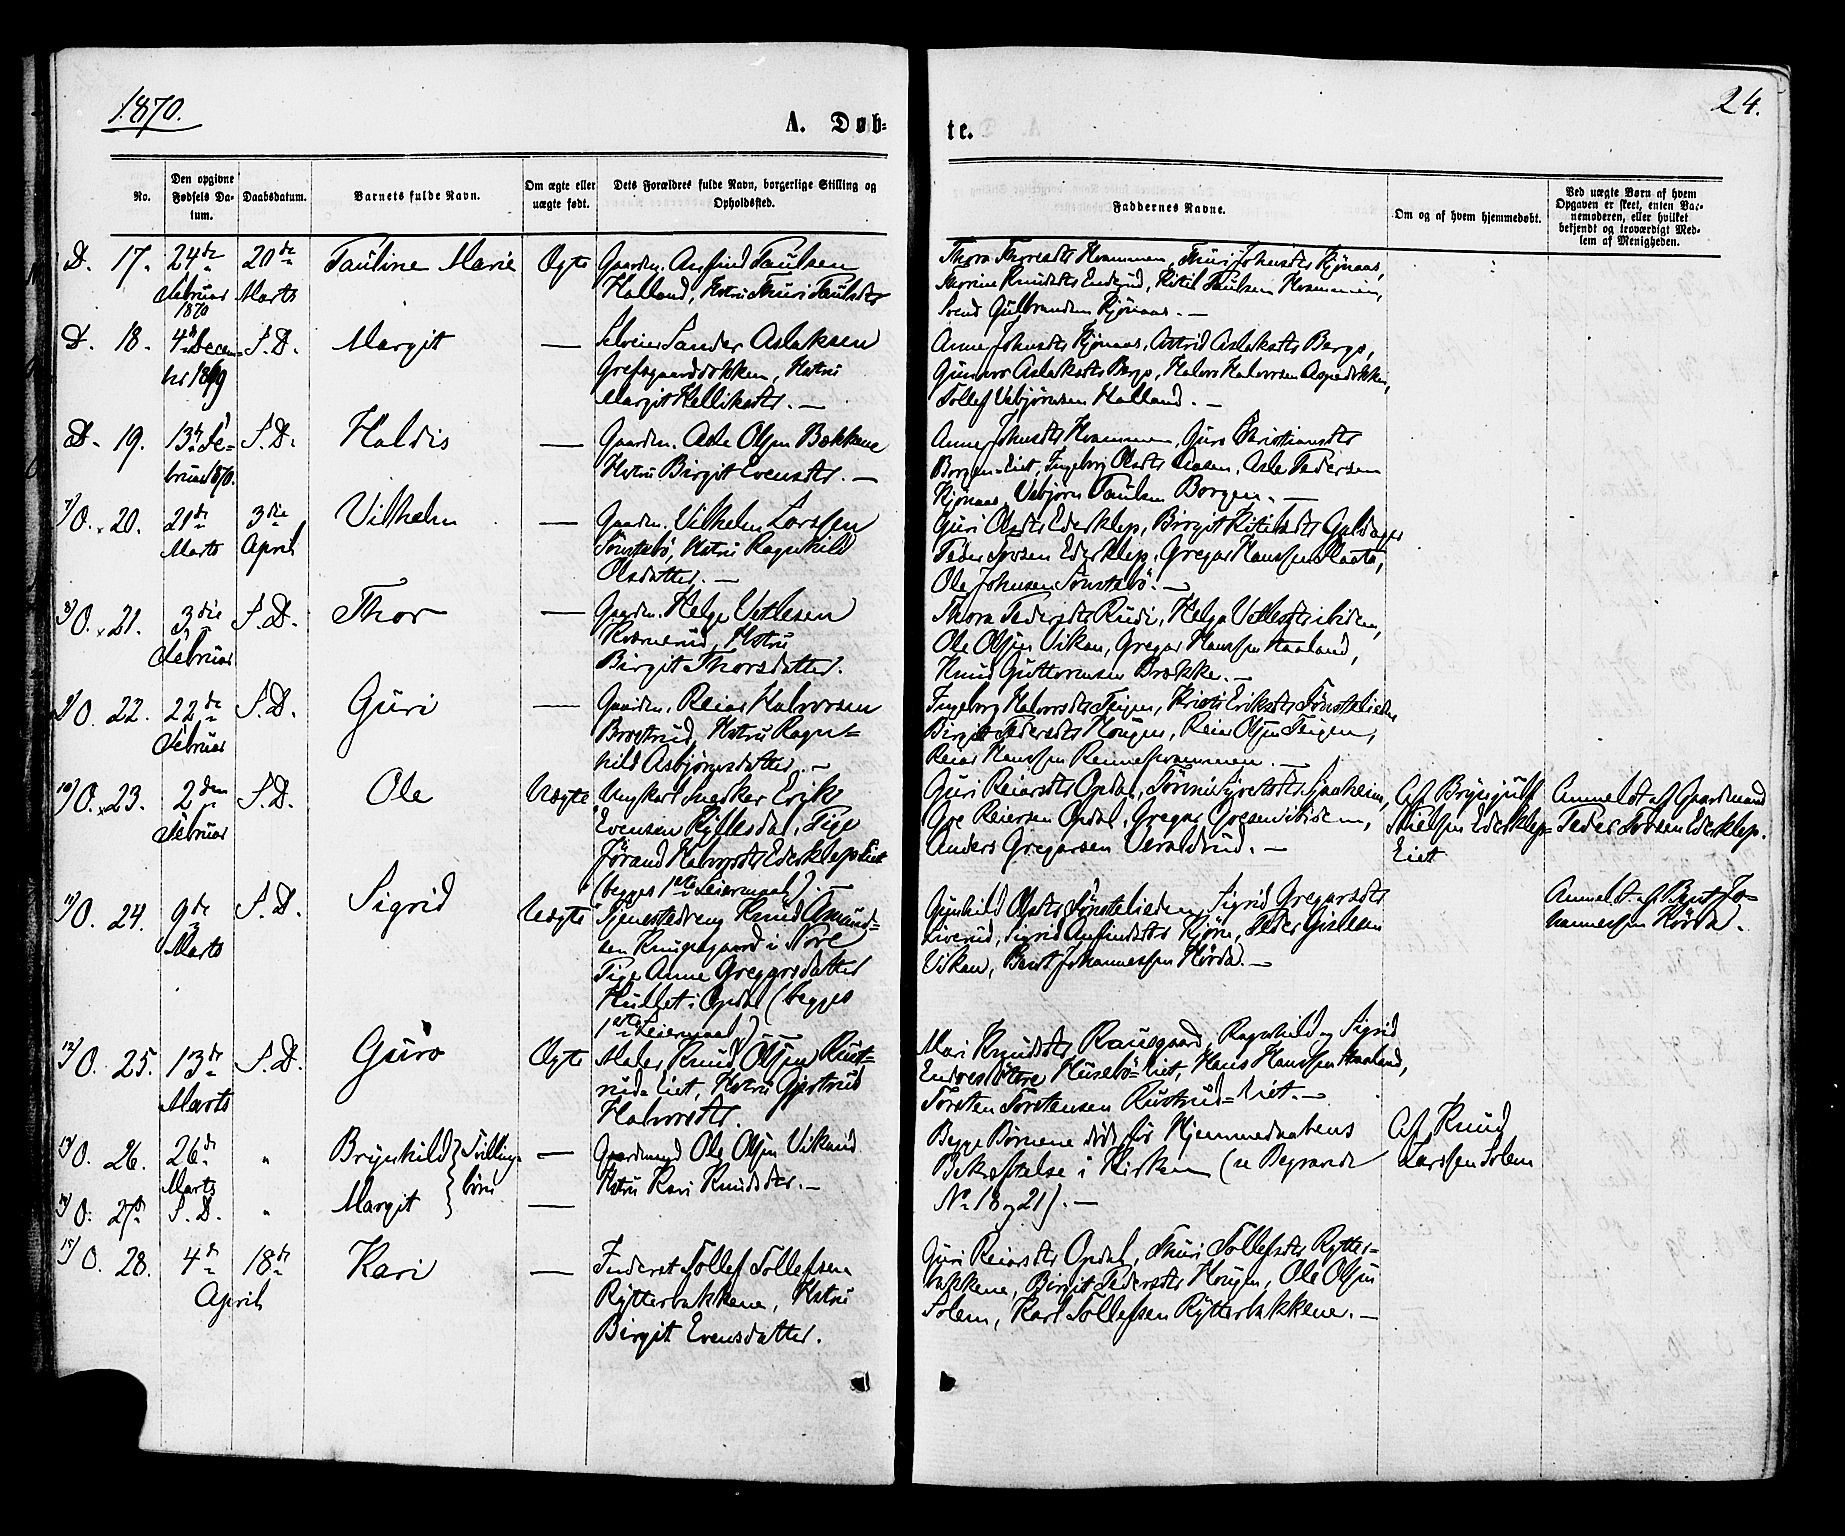 1870.
24.
A. Døb-
te.
No.
Den opgivne Fødsels Datum.
Daabsdatum.
Barnets fulde Navn.
Om ægte eller uægte født.
Dets Forældres fulde Navn, borgerlige Stilling og Opholdssted.
Faddernes Navne.
Om og af hvem hjemmedøbt.
Ved uægte Børn af hvem Opgaven er skeet, enten Barnemoderen, eller hvilket bekjendt og troværdigt Medlem af Menigheden.
D. 17. 24de Februar 1870 20de Marts Pauline Marie Ægte
Gaardm. Anfind Paulsen
Halland, Hstru Thuri Paulsdtr
Thora Thoresdtr Hvammen, Thuri Johnsdtr Kjønaas,
Thorine Knudsdtr Enderud, Kitil Paulsen Hvammen,
Svend Gulbrandsen Kjønaas. —
D. 18. 4de Decembr 1869 S.D. Margit —
Selveier Sander Aslaksen
Grefsgaardslokken, Hstru
Margit Kittilsdtr. —
Anne Johnsdtr Kjønaas, Astrid Aslaksdtr Berge,
Gunvor Aslaksdtr Berge, Halvor Halvorsen
Tollef Vebjørnsen Halland. —
D. 19. 13de Februar 1870. S.D. Haldis —
Gaardm. Asle Olsen Bækkene
Hstru Birgit Evensdtr. —
Anne Johnsdtr Hvammen, Guro Christiansdtr
Borgen-Eiet, Ingeborg Olsdtr Aasen, Asle Pedersen
Kjønaas, Vebjørn Paulsen Borgen. —
O. 20. 21de Marts 3die April Vilhelm —
Gaardm. Vilhelm Larssen
Sønstebö, Hstru Ragnhild
Olsdatter. —
Guri Olsdtr Ederklep, Birgit Kitilsdtr Guldager
Peder Torsen Ederklep, Gregar Hanssen
Ole Johnsen Sønstebö. —
O. 21. 3die Februar S.D. Thor —
Gaardm. Helge Vetlesen
Kværnerud, Hstru
Birgit Thorsdatter.
Thora Pedersdtr Rudi, Helga Vetlesdtr ibidem,
Ole Olsen Vikan, Gregar Hanssen Haaland,
Knud Guttormsen Brække. —
O. 22. 22de Februar S.D. Guri —
Gaardm. Reiar Halvorsen
Brostrud, Hstru Ragn-
hild Asbjørnsdatter. —
Ingeborg Halvorsdtr Teigen, Kristi Eriksdtr Sønstelieden
Birgit Pedersdtr Hougen, Reiar Olsen Teigen,
Reiar Hanssen Rennehvammen. —
O. 23. 2den Februar S.D. Ole Uægte
Ungkarl Snedker Erik
Evensen Kyllesdal, Pige
Jørand Halvorsdtr Ederklep Eiet
(begges 1ste Leiermaal). —
Guri Reiarsdtr Opdal, Sønni Syversdtr Sjaaheim,
Gro Reiersen Opdal, Gregar Groesen ibidem,
Anders Gregarsen Veraldrud. —
Af Brynjulf
Nielsen Ederklep-
Eiet
Anmeldt af Gaardmand
Peder Torsen Ederklep.
O. 24. 9de Marts S.D. Sigrid Uægte
Tjenestedreng Knud Amund-
sen Knupsgaard i Nore
Pige Anne Gregarsdatter
Hullet i Opdal (begges
1ste Leiermaal). —
Gunhild Olsdtr Sønstelieden, Sigrid Gregarsdtr
Liverud, Sigrid Anfindsdtr Kjøne, Peder Gislesen
Vikan, Bent Johannessen Hørda. —
Anmeldt af Bent Jo-
hannessen Hörda.
O. 25. 13de Marts S.D. Guro Ægte
Maler Knud Olsen Rust-
rud-Eiet, Hstru Gjertrud
Halvorsdtr.
Mari Knudsdtr Rausgaard, Ragnhild og Sigrid
Endresdötre Husebö-Eiet, Hans Hanssen Haaland,
Torsten Torstensen Rustrud-Eiet. —
O. 26. 26de Marts " Brynhild } Tvillinge- —
Gaardmand Ole Olsen Vikand
Hstru Kari Knudsdtr. —
Begge Börnene döde för Hjemmedaabens
Bekræftelse i Kirken (se Begravede
No 18 og 21). —
Af Knud
Larssen Solem
O. 27 S.D. " Margit } börn —
O. 28. 4de April 18de Kari —
Inderst Tollef Tollefsen
Rytterbakkene, Hstru
Birgit Evensdatter.
Guri Reiarsdtr Opdal, Thuri Tollefsdtr Rytter-
bakkene, Birgit Pedersdtr Hougen, Ole Olsen
Solem, Karl Tollefsen Rytterbakkene. —